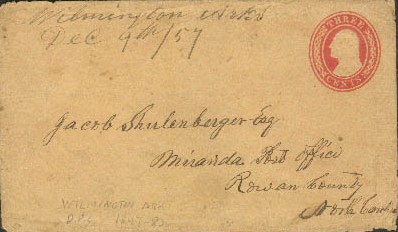 Wilmington Arks
Dec 9th/57
THREE
CENTS
Jacob Shulenberger Esq
Miranda Post Office
Rowan County
North Carolina
WILMINGTON ARK